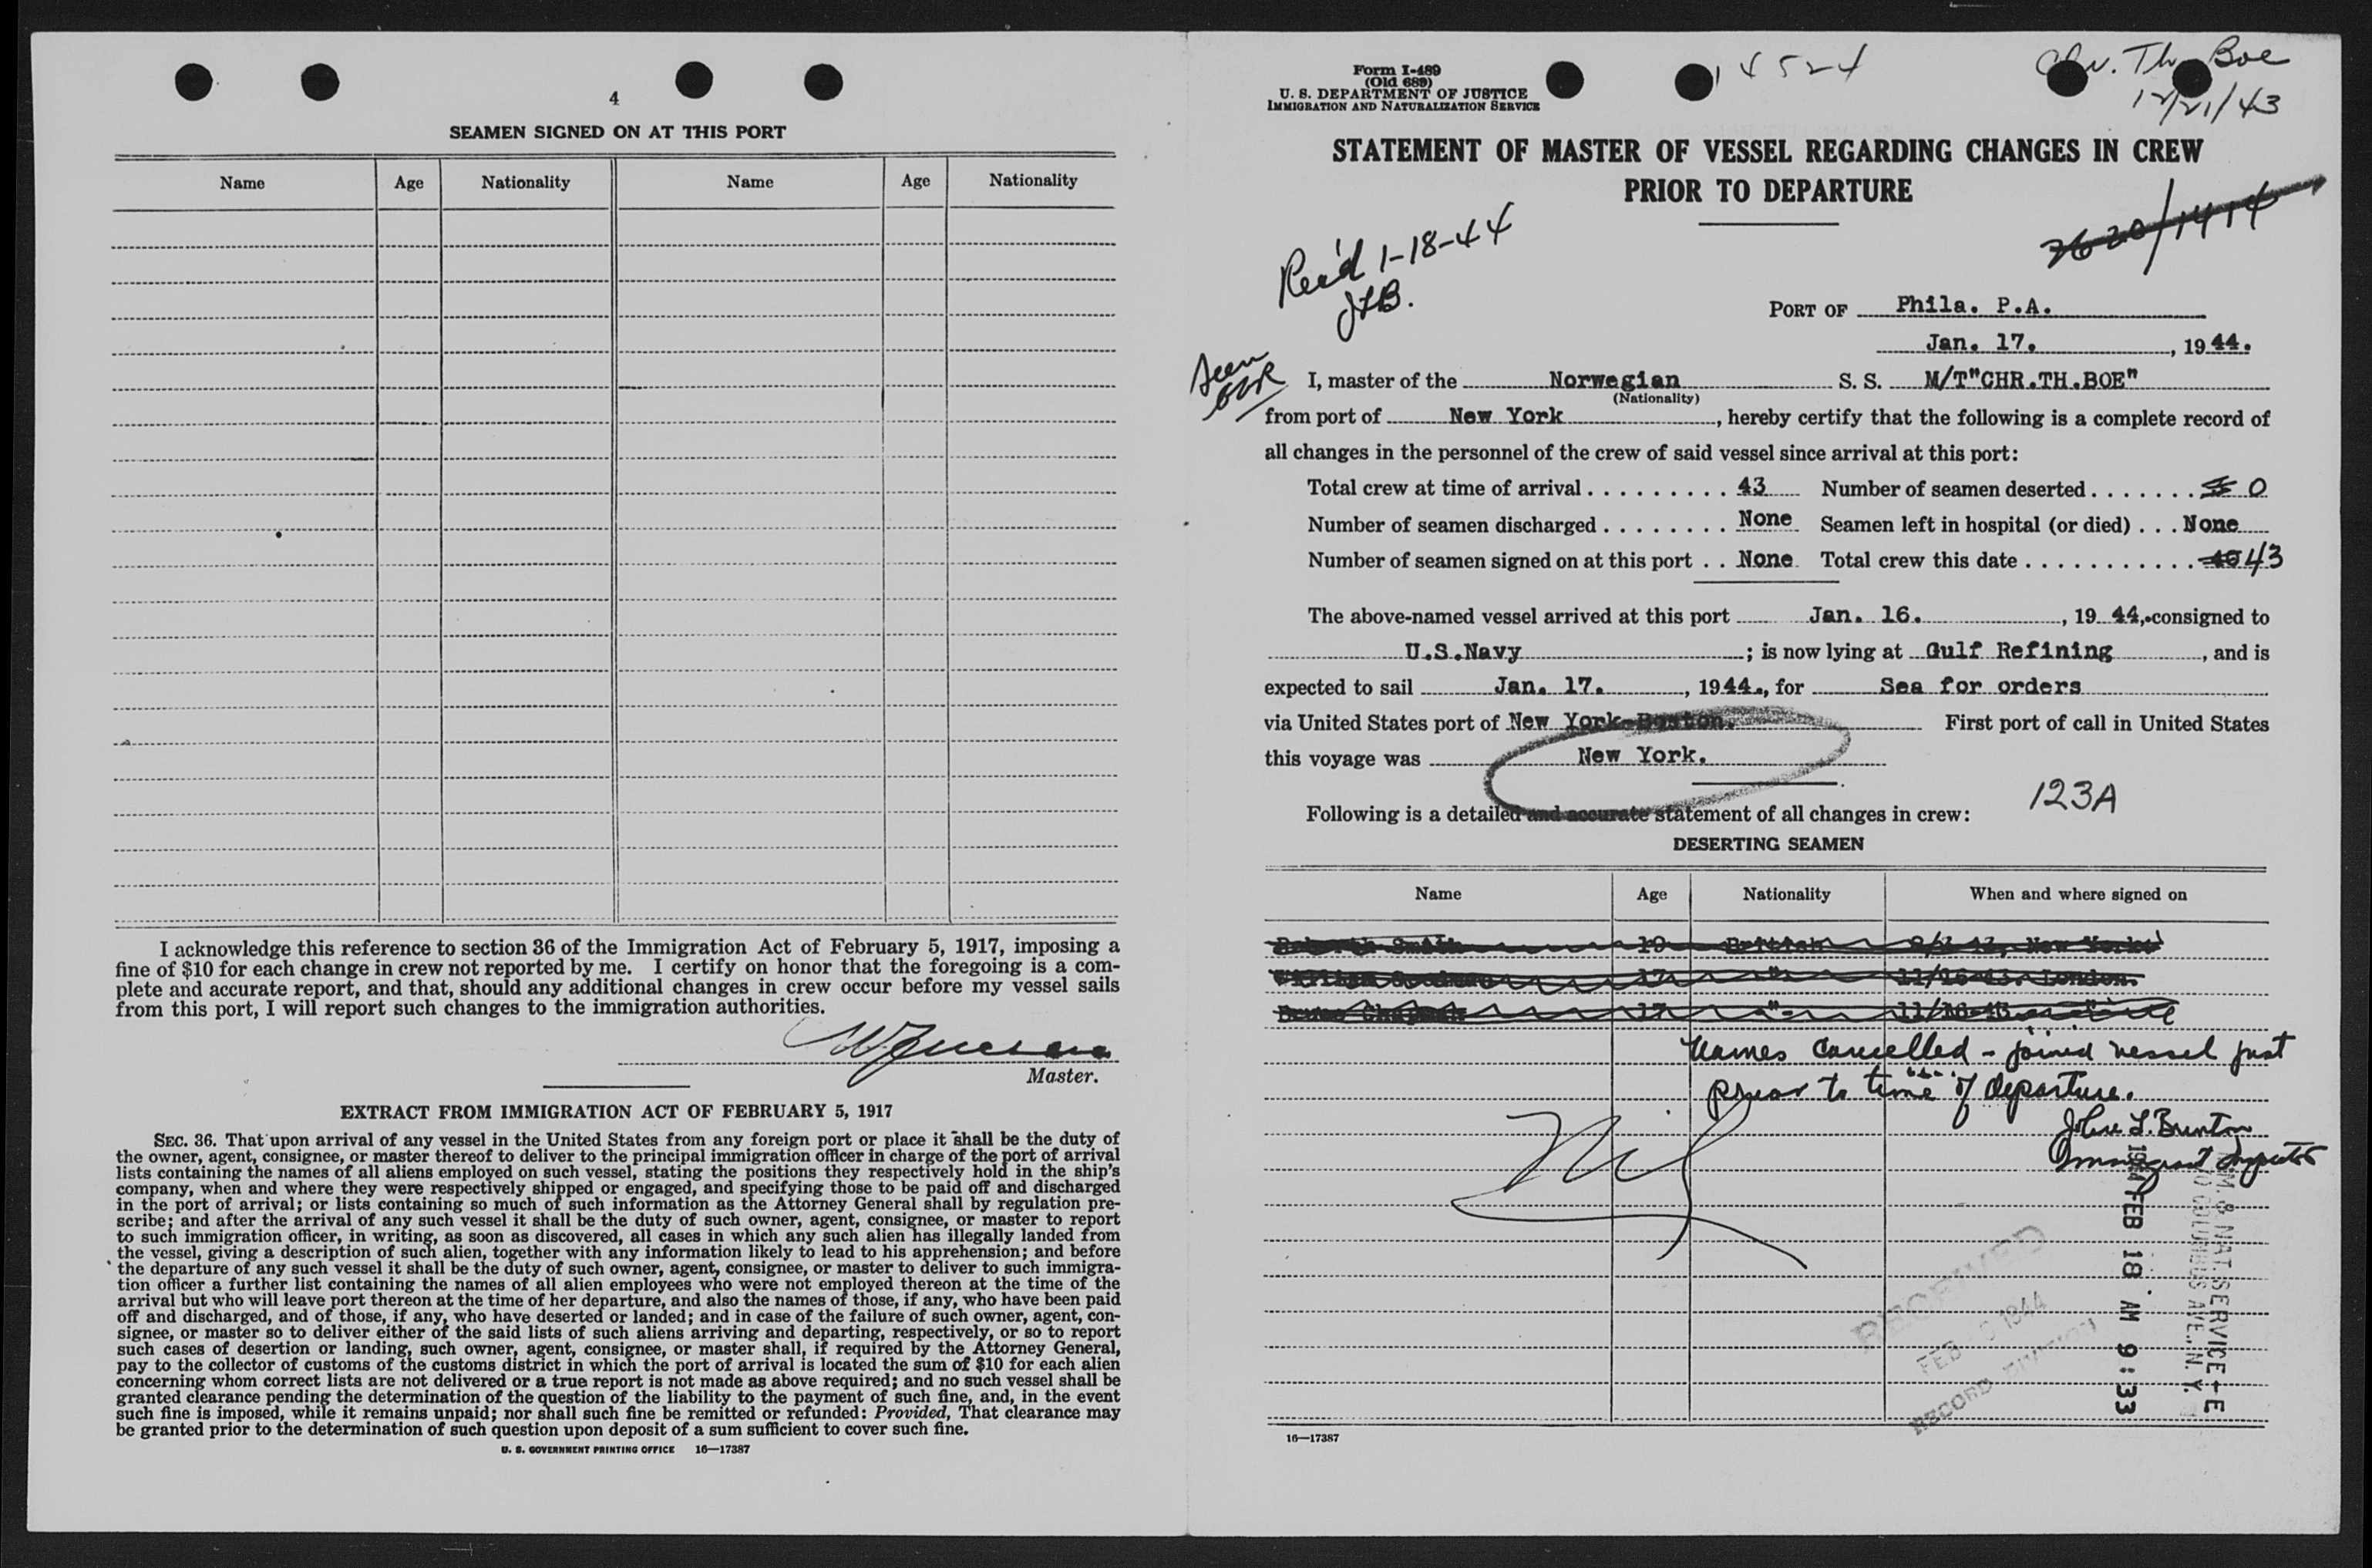 4
SEAMEN SIGNED ON AT THIS PORT
Name Age Nationality Name Age Nationality
I acknowledge this reference to section 36 of the Immigration Act of February 5, 1917, imposing a
fine of $10 for each change in crew not reported by me. I certify on honor that the foregoing is a com-
plete and accurate report, and that, should any additional changes in crew occur before my vessel sails
from this port, I will report such changes to the immigration authorities.
Master.
EXTRACT FROM IMMIGRATION ACT OF FEBRUARY 5, 1917
SEC. 36. That upon arrival of any vessel in the United States from any foreign port or place it shall be the duty of
the owner, agent, consignee, or master thereof to deliver to the principal immigration officer in charge of the port of arrival
lists containing the names of all aliens employed on such vessel, stating the positions they respectively hold in the ship's
company, when and where they were respectively shipped or engaged, and specifying those to be paid off and discharged
in the port of arrival; or lists containing so much of such information as the Attorney General shall by regulation pre-
scribe; and after the arrival of any such vessel it shall be the duty of such owner, agent, consignee, or master to report
to such immigration officer, in writing, as soon as discovered, all cases in which any such alien has illegally landed from
the vessel, giving a description of such alien, together with any information likely to lead to his apprehension; and before
the departure of any such vessel it shall be the duty of such owner, agent, consignee, or master to deliver to such immigra-
tion officer a further list containing the names of all alien employees who were not employed thereon at the time of the
arrival but who will leave port thereon at the time of her departure, and also the names of those, if any, who have been paid
off and discharged, and of those, if any, who have deserted or landed; and in case of the failure of such owner, agent, con-
signee, or master so to deliver either of the said lists of such aliens arriving and departing, respectively, or so to report
such cases of desertion or landing, such owner, agent, consignee, or master shall, if required by the Attorney General,
pay to the collector of customs of the customs district in which the port of arrival is located the sum of $10 for each alien
concerning whom correct lists are not delivered or a true report is not made as above required; and no such vessel shall be
granted clearance pending the determination of the question of the liability to the payment of such fine, and, in the event
such fine is imposed, while it remains unpaid; nor shall such fine be remitted or refunded: Provided, That clearance may
be granted prior to the determination of such question upon deposit of a sum sufficient to cover such fine.
U. S. GOVERNMENT PRINTING OFFICE 16—17387
Form I-489
(Old 689)
U. S. DEPARTMENT OF JUSTICE
IMMIGRATION AND NATURALIZATION SERVICE
Chr. Th. Boe
12/21/43
STATEMENT OF MASTER OF VESSEL REGARDING CHANGES IN CREW
PRIOR TO DEPARTURE
2620/1414
Rec'd 1-18-44
JLB.
PORT OF Phila. P.A.
Jan. 17. , 1944.
Seen
I, master of the Norwegian S. S. M/T"CHR.TH.BOE"
(Nationality)
from port of New York , hereby certify that the following is a complete record of
all changes in the personnel of the crew of said vessel since arrival at this port:
Total crew at time of arrival . . . . . . . . . . 43 Number of seamen deserted . . . . . . . 0
Number of seamen discharged . . . . . . . . None Seamen left in hospital (or died) . . . None
Number of seamen signed on at this port . . None Total crew this date . . . . . . . . . . . 40 43
The above-named vessel arrived at this port Jan. 16. , 19 44, consigned to
U.S.Navy ; is now lying at Gulf Refining , and is
expected to sail Jan. 17. , 1944., for Sea for orders
via United States port of New York-Boston. First port of call in United States
this voyage was New York.
123A
Following is a detailed and accurate statement of all changes in crew:
DESERTING SEAMEN
Name Age Nationality When and where signed on
Smith 19 British New York
17 " 11/16-43. London.
17 "
Names cancelled - joined vessel just
prior to time of departure.
John L. Brinton
Immigrant Inspector
Nil
RECEIVED
FEB 1944
RECORD
1944 FEB 18 AM 9:33
IM. & NAT. SERVICE
70 COLUMBUS AVE., N. Y.
16—17387